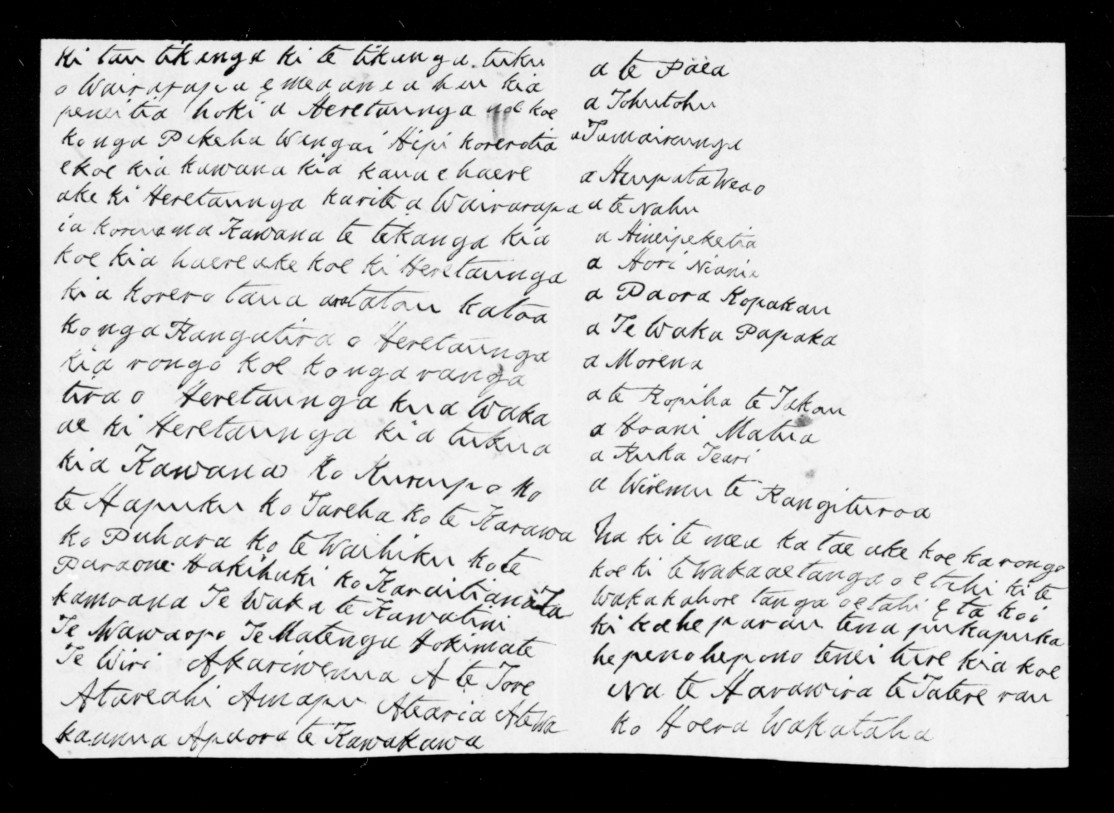 ki tau tikanga ki te tikanga tuku
o Wairarapa e mea ana ahau kia
peneitia hoki a Heretaunga no koe
ko nga Pakeha Wangai Hipi korerotia
e koe kia kawana kia kaua e haere
ake ki Heretaunga karite a Wairarapa
ia korerama Kawana te tikanga kia
koe kia haere ake koe ki Heretaunga
kia korero tana tatou katoa
ko nga Rangatira o Heretaunga
kia rongo koe ko nga ranga
tira o Heretaunga kua Waka
ae ki Heretaunga kia tukua
kia Kawana ko Kurupo ko
te Hapuku ko Tareha ko te Karawa
ko Puhara ko te Waihiku ko te
Paraone Hakihaki ko Karaitiana Ta
kamoana Te Waka te Kawatini
Te Wawaopo Te Matenga Hokimate
Te Wiri Akariwenua A te Tore
Atareahi Amapu Atearia Atewa
kaunua Apaora te Kawakawa
a te Paea
a Tohutohu
a Tamairaunga
a Hurpata Weao
a te Nahu
a Hineipeketia
a Hori Niania
a Paora Kopakau
a Te Waka Papaka
a Morena
a te Ropiha te Takau
a Hoani Matua
a Ruka Teari
a Wiremu te Rangituroa
Na ki te mea ka tae ake koe ka rongo
koe ki te Wakaaetanga o etahi ki te
Wakakahore tanga o etahi e ta koi
ki koe he parau tena pukapuka
he pono he pono tenei ture kia koe
Na te Harawira te Tatere rau
ko Hoera Wakataha